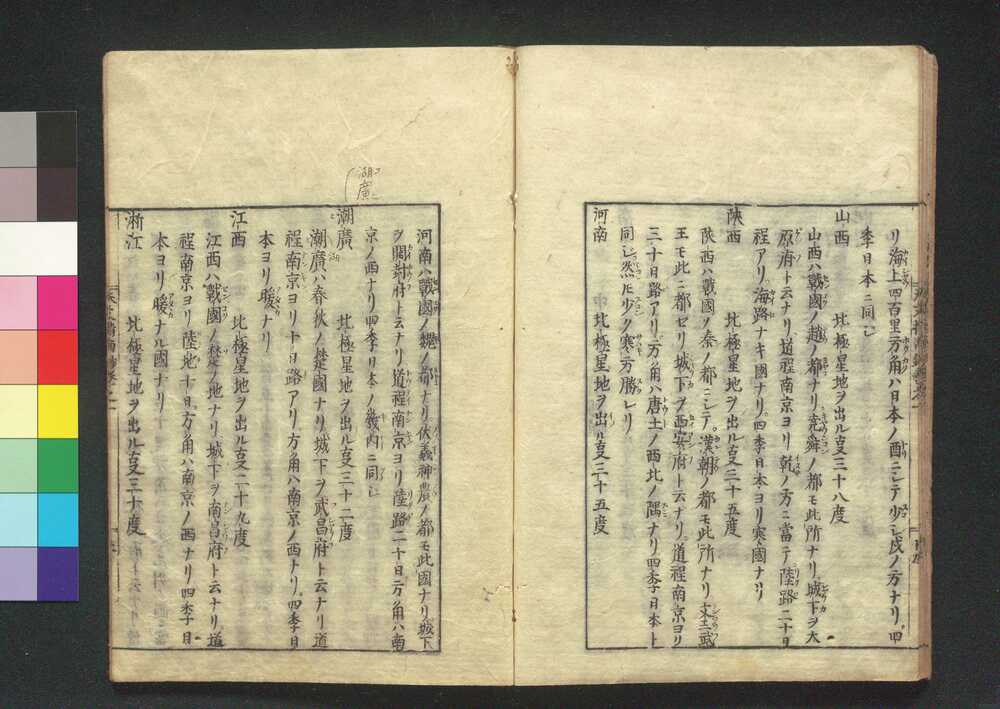 リ海上四百里方角ハ日本ノ酉ニシテ少シ戌ノ方ナリ四
季日本ニ同シ
山西　北極星地ヲ出ル叓三十八度
山西ハ戰國ノ趙ノ都ナリ堯舜ノ都モ此所ナリ城下ヲ大
原府ト云ナリ道程南京ヨリ乾ノ方ニ當テ陸路二十日
程アリ海路ナキ國ナリ四季日本ヨリ寒國ナリ
陝西　北極星地ヲ出ル叓三十五度
陝西ハ戰國ノ秦ノ都ニシテ漢朝ノ都モ此所ナリ文王武
王モ此ニ都セリ城下ヲ西安府ト云ナリ道程南京ヨリ
三十日路アリ方角ハ唐土ノ西北ノ隅ナリ四季日本ト
同シ然ヒ少ク寒方勝レリ
河南　北極星地ヲ出ル叓三十五度
河南ハ戰國ノ魏ノ都ナリ伏羲神農ノ都モ此國ナリ城下
ヲ開封府ト云ナリ道程南京ヨリ陸路二十日方角ハ南
京ノ西ナリ四季日本ノ畿内ニ同シ
湖廣
潮廣　北極星地ヲ出ル叓三十二度
湖
潮廣ハ春秋ノ楚國ナリ城下ヲ武昌府ト云ナリ道
程南京ヨリ十日路アリ方角ハ南京ノ西ナリ四季日
本ヨリ暖ナリ
江西　北極星地ヲ出ル叓二十九度
江西ハ戰國ノ楚ノ地ナリ城下ヲ南昌府ト云ナリ道
程南京ヨリ陸地十日方角ハ南京ノ西ナリ四季日
本ヨリ暖ナル國ナリ
浙江　北極星地ヲ出ル叓三十度